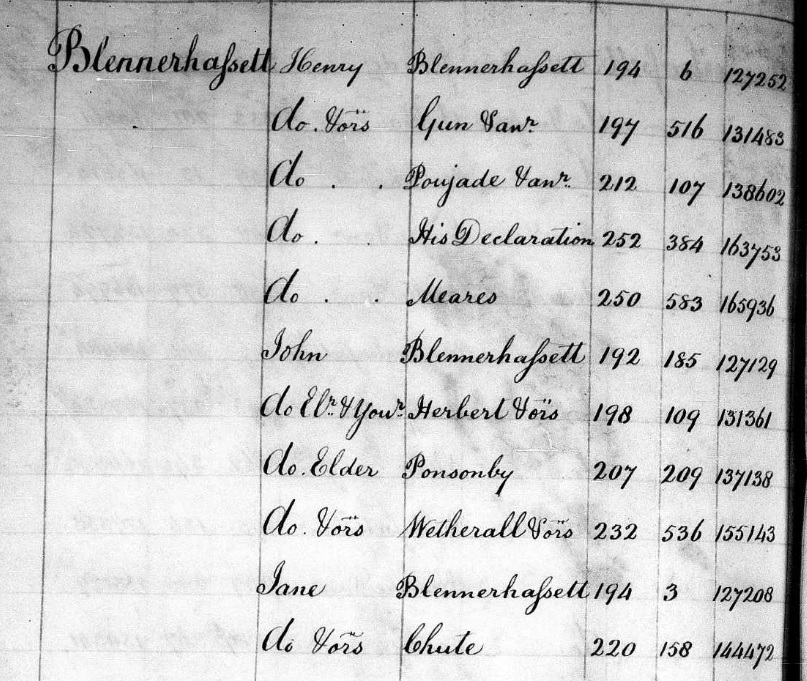 Blennerhaſsett Henry Blennerhaſsett 194 6 127252
do. & ors Gun & anr. 197 516 131483
do . . Poujade & anr. 212 107 138602
do . . His Declaration 252 384 163753
do . . Meares 250 583 165936
John Blennerhaſsett 192 185 127129
do Elr. & Your Herbert & ors 198 109 131361
do. Elder Ponsonby 207 209 137138
do. & ors Wetherall & ors 232 536 155143
Jane Blennerhaſsett 194 3 127208
do & ors Chute 220 158 144472